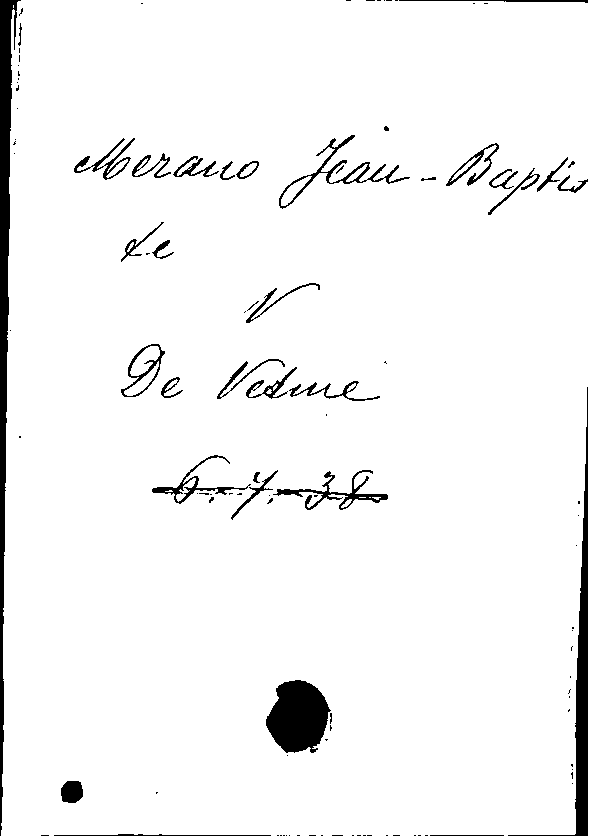 Merano Jean-Baptis
te
V
De Vesme
6.7.38